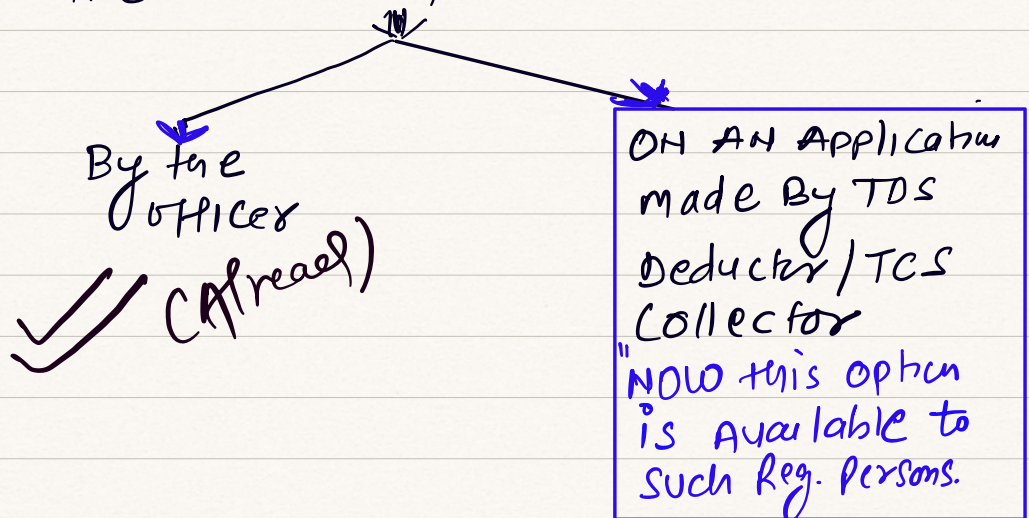 By the
officer
(Alread)
ON AN Application
made By TDS
Deductor/TCS
Collector
"NOW this option
is Available to
such Reg. Persons.